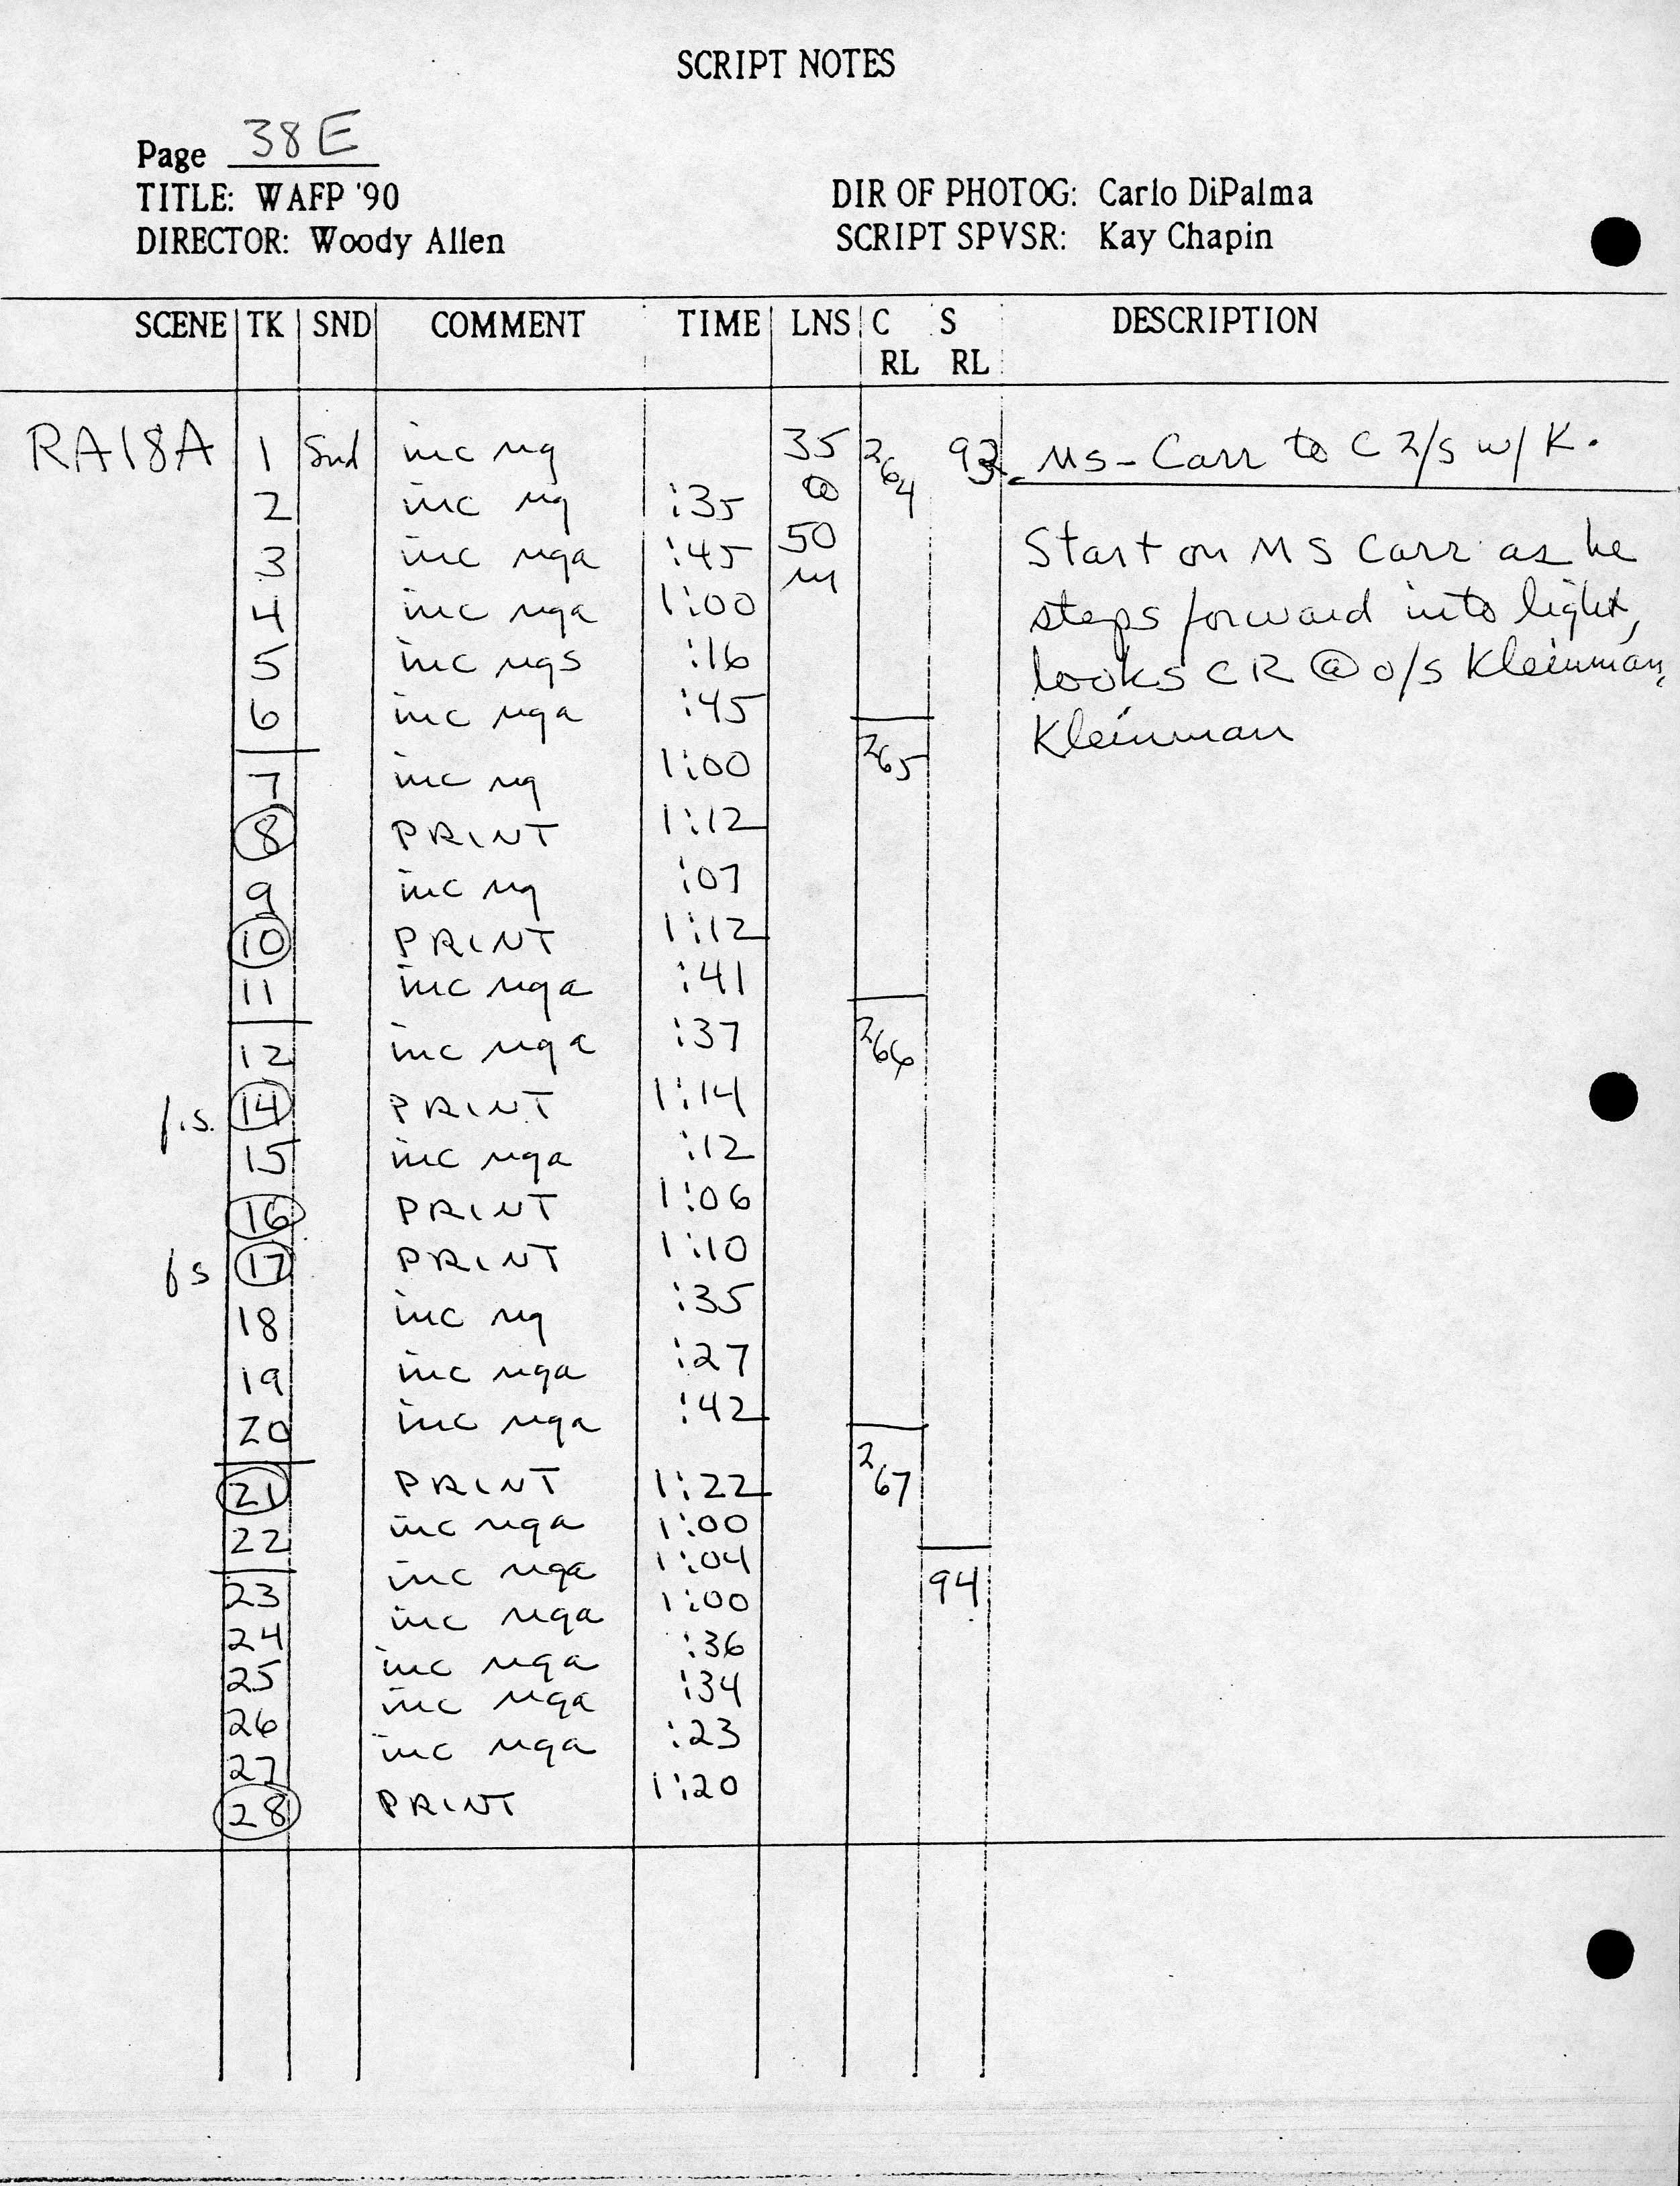 SCRIPT NOTES
Page 38E
TITLE: WAFP '90
DIR OF PHOTOG: Carlo DiPalma
DIRECTOR: Woody Allen
SCRIPT SPVSR: Kay Chapin
SCENE TK SND COMMENT TIME LNS C S DESCRIPTION
RL RL
RA18A 1 Snd inc ng 35 264 93 MS - Carr to C 2/S w/ K.
2 inc ng :35 @
3 inc nga :45 50 Start on MS Carr as he
m
4 inc nga 1:00 steps forward into light,
5 inc ngs :16 looks CR @ o/s Kleinman,
6 inc nga :45 Kleinman
7 inc ng 1:00 265
8 PRINT 1:12
9 inc ng :07
10 PRINT 1:12
11 inc nga :41
12 inc nga :37 266
f.s. 14 PRINT 1:14
15 inc nga :12
16 PRINT 1:06
fs 17 PRINT 1:10
18 inc ng :35
19 inc nga :27
20 inc nga :42
21 PRINT 1:22 267
22 inc nga 1:00
23 inc nga 1:04 94
24 inc nga 1:00
25 inc nga :36
26 inc nga :34
27 inc nga :23
28 PRINT 1:20